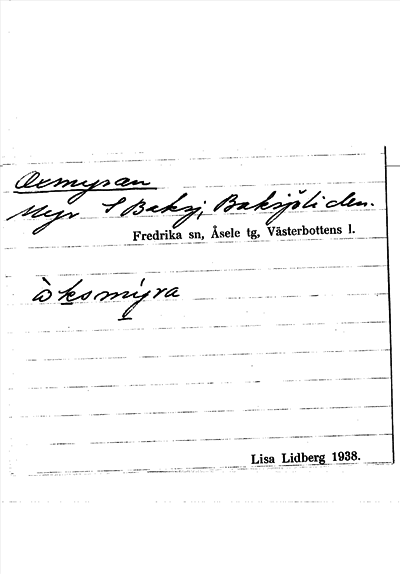 Oxmyran
Myr S Baksj, Baksjöliden.
Fredrika sn, Åsele tg, Västerbottens l.
òksmýra
Lisa Lidberg 1938.